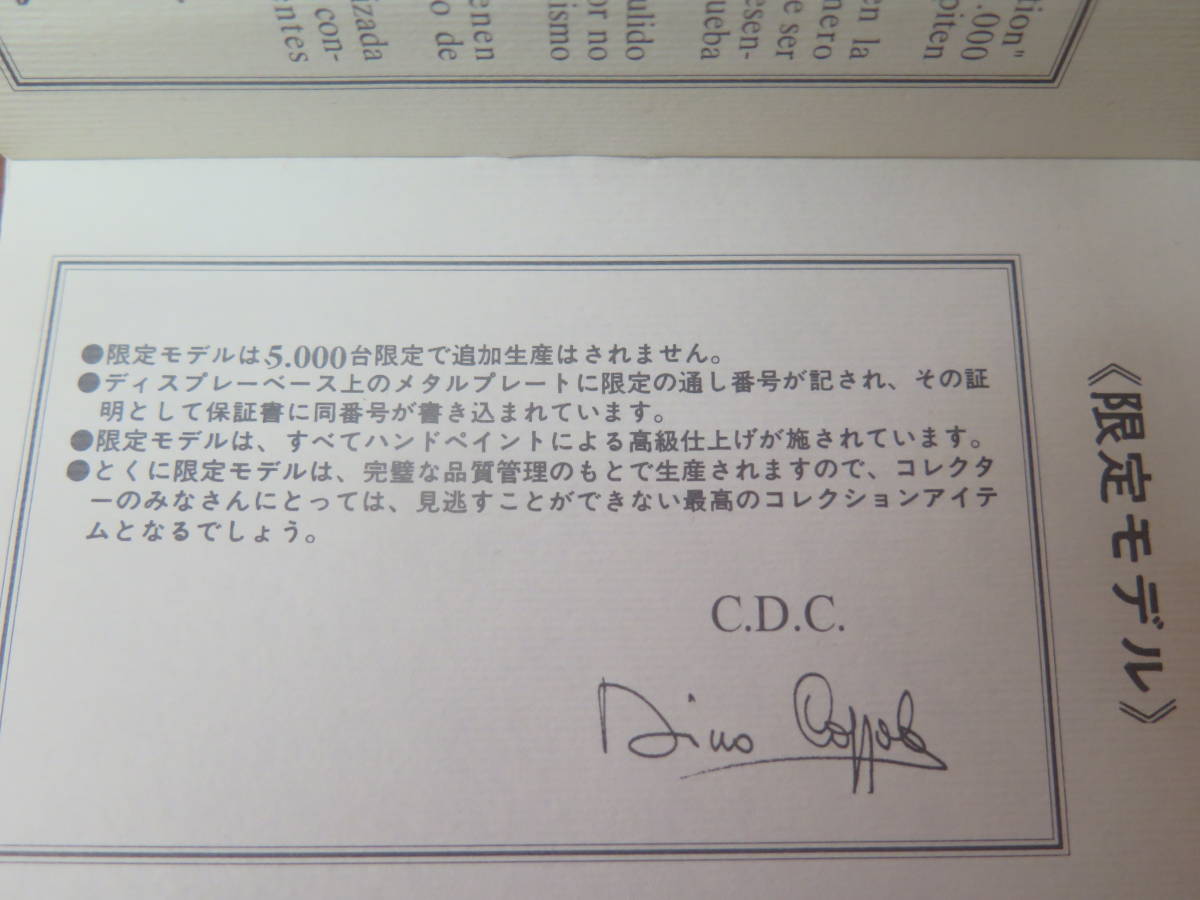 tion"
.000
piten
en la
nero
e ser
esen-
ueba
ulido
or no
ismo
enen
o de
izada
con-
entes
《限定モデル》
●限定モデルは5.000台限定で追加生産はされません。
●ディスプレーベース上のメタルプレートに限定の通し番号が記され、その証
明として保証書に同番号が書き込まれています。
●限定モデルは、すべてハンドペイントによる高級仕上げが施されています。
●とくに限定モデルは、完璧な品質管理のもとで生産されますので、コレクタ
ーのみなさんにとっては、見逃すことができない最高のコレクションアイテ
ムとなるでしょう。
C.D.C.